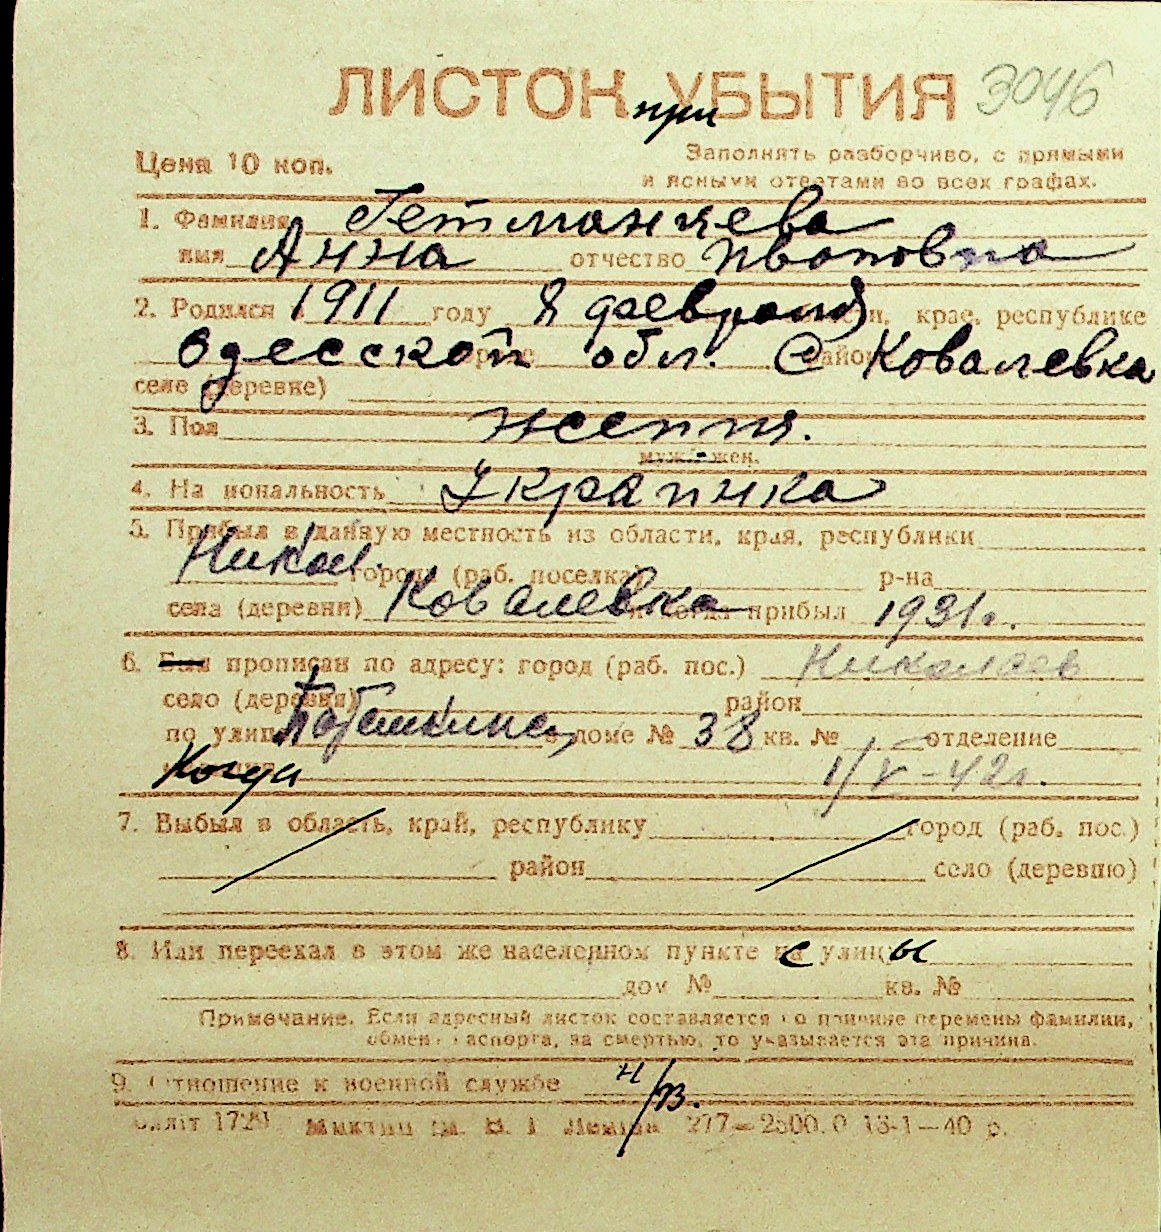 ЛИСТОК УБЫТИЯ 3046
при
Цена 10 коп.
Заполнять разборчиво, с прямыми
и ясными ответами во всех графах.
1. Фамилия Гетманчева
имя Анна отчество Ивановна
2. Родился 1911 году 8 февраля крае, республике
Одесской обл. С Ковалевка
село (деревне)
3. Пол женпия.
муж. жен.
4. Национальность Украинка
5. Прибыл в данную местность из области, края, республики
Никол. города (раб. поселка) р-на
села (деревни) Ковалевка когда прибыл 1931г.
6. Был прописан по адресу: город (раб. пос.) Николаев
село (деревня) район
по улице в доме № 38 кв. № отделение
Когда 1/V-42г.
7. Выбыл в область, край, республику город (раб. пос.)
район село (деревню)
8. Или переехал в этом же населенном пункте с улицы
дом № кв. №
Примечание. Если адресный листок составляется по причине перемены фамилии,
обмена паспорта, за смертью, то указывается эта причина.
9. Отношение к военной службе н/в.
1729 277—2500.0 13-1—40 р.